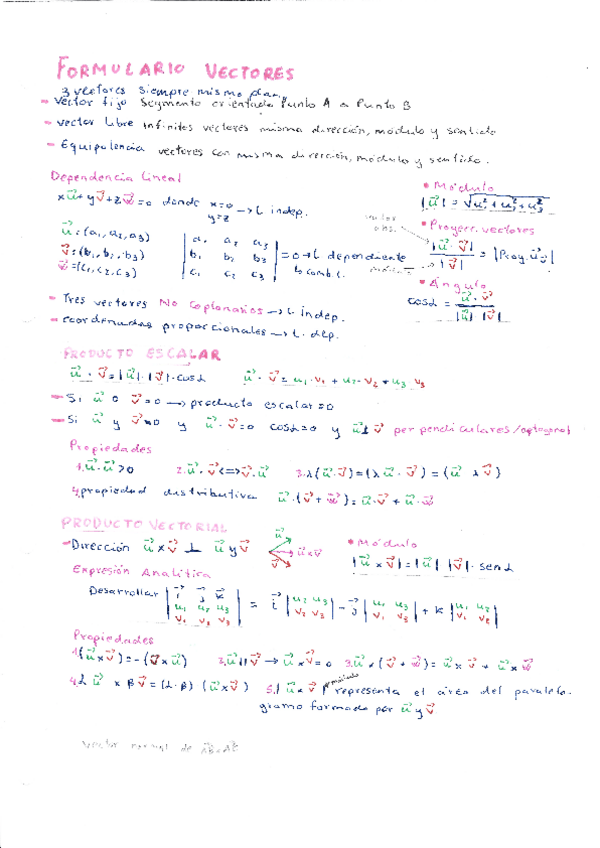 FORMULARIO VECTORES
3 vectores siempre mismo plano
- Vector fijo segmento orientado Punto A a Punto B
- Vector libre infinitos vectores misma dirección, módulo y sentido
- Equipolencia vectores con misma dirección, módulo y sentido.
Dependencia lineal
xu⃗+yv⃗+zw⃗=0 donde x=0 y=z → L indep.
• Módulo
|u⃗| = √(u₁²+u₂²+u₃²)
u⃗=(a₁, a₂, a₃)
v⃗=(b₁, b₂, b₃)
w⃗=(c₁, c₂, c₃)
| a₁ a₂ a₃ |
| b₁ b₂ b₃ | = 0 → L dependiente
| c₁ c₂ c₃ | ↳ comb. L.
valor abs.
• Proyecc. vectores
|u⃗ · v⃗| / |v⃗| = |Proy. u⃗ v⃗|
• Ángulo
cosα = u⃗ · v⃗ / |u⃗| |v⃗|
- Tres vectores No coplanarios → L. indep.
- coordenadas proporcionales → L. dep.
PRODUCTO ESCALAR
u⃗ · v⃗ = |u⃗| · |v⃗| · cosα u⃗ · v⃗ = u₁ · v₁ + u₂ · v₂ + u₃ v₃
- Si u⃗ o v⃗=0 → producto escalar=0
- Si u⃗ y v⃗≠0 y u⃗ · v⃗=0 cosα=0 y u⃗⊥v⃗ perpendiculares/ortogonal
Propiedades
1. u⃗·u⃗>0 2. u⃗·v⃗<=>v⃗·u⃗ 3. λ(u⃗·v⃗)=(λu⃗·v⃗) = (u⃗ λv⃗)
4. propiedad distributiva u⃗·(v⃗+w⃗)=u⃗·v⃗+u⃗·w⃗
PRODUCTO VECTORIAL
- Dirección u⃗×v⃗ ⊥ u⃗ y v⃗
u⃗
u⃗×v⃗
v⃗
• Módulo
|u⃗×v⃗|=|u⃗| |v⃗| · senα
Expresión Analítica
Desarrollar
| i⃗ j⃗ k⃗ |
| u₁ u₂ u₃ | = i⃗ |u₂ u₃ / v₂ v₃| - j⃗ |u₁ u₃ / v₁ v₃| + k |u₁ u₂ / v₁ v₂|
| v₁ v₂ v₃ |
Propiedades
1. (u⃗×v⃗)=-(v⃗×u⃗) 2. u⃗||v⃗ → u⃗×v⃗=0 3. u⃗×(v⃗+w⃗)= u⃗×v⃗ + u⃗×w⃗
4. α u⃗ × βv⃗=(α·β) (u⃗×v⃗) 5. |u⃗×v⃗| módulo representa el área del paralelo-
gramo formado por u⃗ y v⃗
vector normal de AB×AC